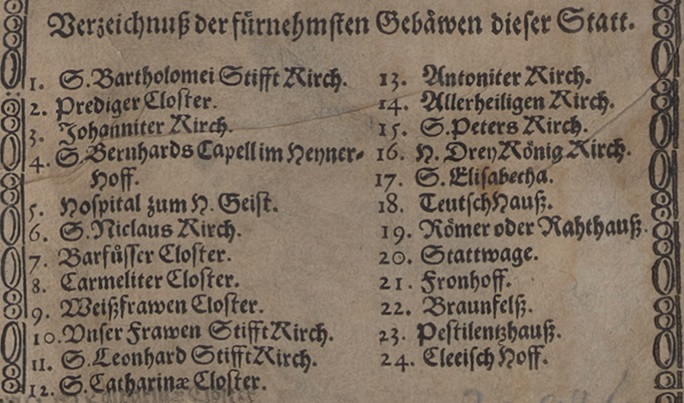 Verzeichnuß der fürnehmsten Gebäwen dieser Statt.
1. S. Bartholomei Stifft Kirch.
2. Prediger Closter.
3. Johanniter Kirch.
4. S. Bernhards Capell im Heyner-
Hoff.
5. Hospital zum H. Geist.
6. S. Niclaus Kirch.
7. Barfüsser Closter.
8. Carmeliter Closter.
9. Weißfrawen Closter.
10. Vnser Frawen Stifft Kirch.
11. S. Leonhard Stifft Kirch.
12. S. Catharinæ Closter.
13. Antoniter Kirch.
14. Allerheiligen Kirch.
15. S. Peters Kirch.
16. H. Drey König Kirch.
17. S. Elisabetha.
18. Teutsch Hauß.
19. Römer oder Rahthauß.
20. Stattwage.
21. Fronhoff.
22. Braunfelß.
23. Pestilentzhauß.
24. Cleeisch Hoff.